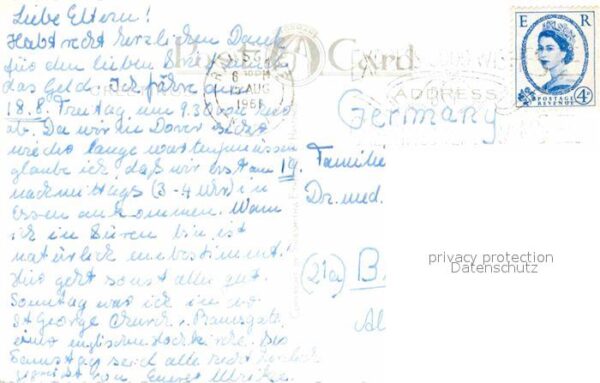 Liebe Eltern!
Habt recht herzlichen Dank
für den lieben Brief und
das Geld. Ich fahre am
18.8. Freitag um 9.30 von hier
ab. Da wir in Dover sicher
wieder lange warten müssen
glaube ich, daß wir erst am 19.
nachmittags (3-4 Uhr) in
Essen ankommen. Wann
ich in Düren bin ist
natürlich unbestimmt!
Hier geht sonst alles gut.
Sonntag war ich in
St George Church, Ramsgate
eine englische Hochkirche. Bis
Samstag seid alle recht herzlich
gegrüßt von Eurer Ulrike
Post Card
6 PM
AUG
ADDRESS
E R
POSTAGE
REVENUE
4D
Germany
Familie
Dr. med.
(21a) B
Al
privacy protection
Datenschutz